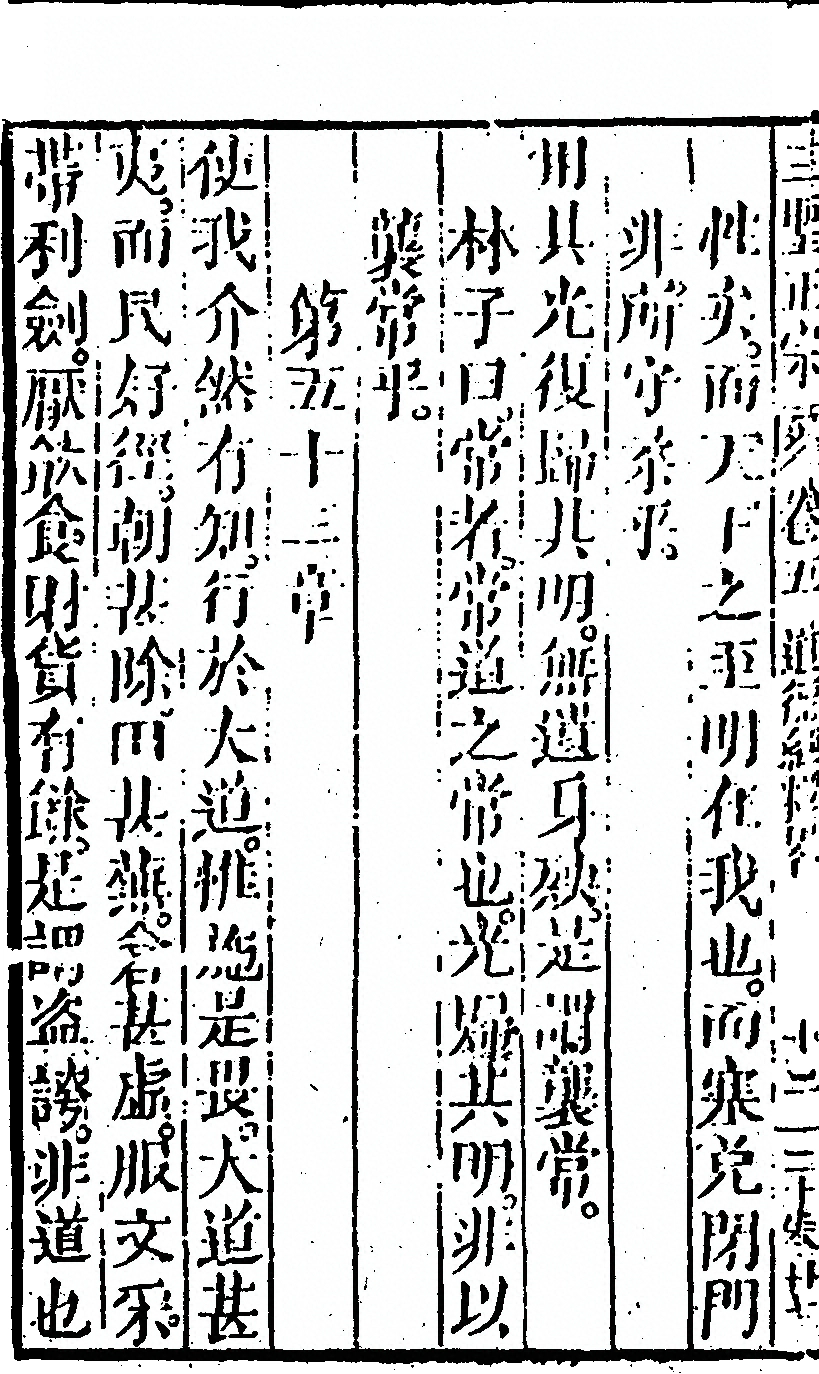 性矣。而天下之至明在我也。而塞兌閉門
非所守余乎。
用其光復歸其明。無遺身殃。是謂襲常。
林子曰。常者。常道之常也。光歸其明。非以
襲常乎。
第五十三章
使我介然有知。行於大道。惟施是畏。大道甚
夷。而民好徑。朝甚除。田甚蕪。倉甚虛。服文采。
帶利劍。厭飲食。財貨有餘。是謂盜誇。非道也